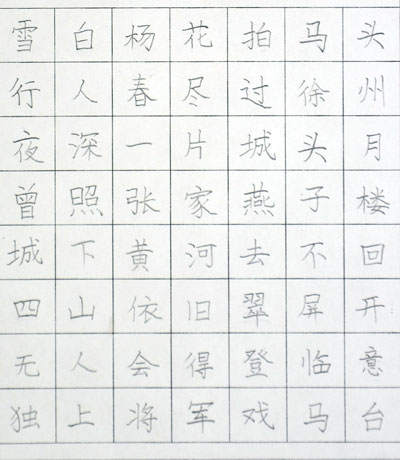 雪白杨花拍马头
行人春尽过徐州
夜深一片城头月
曾照张家燕子楼
城下黄河去不回
四山依旧翠屏开
无人会得登临意
独上将军戏马台